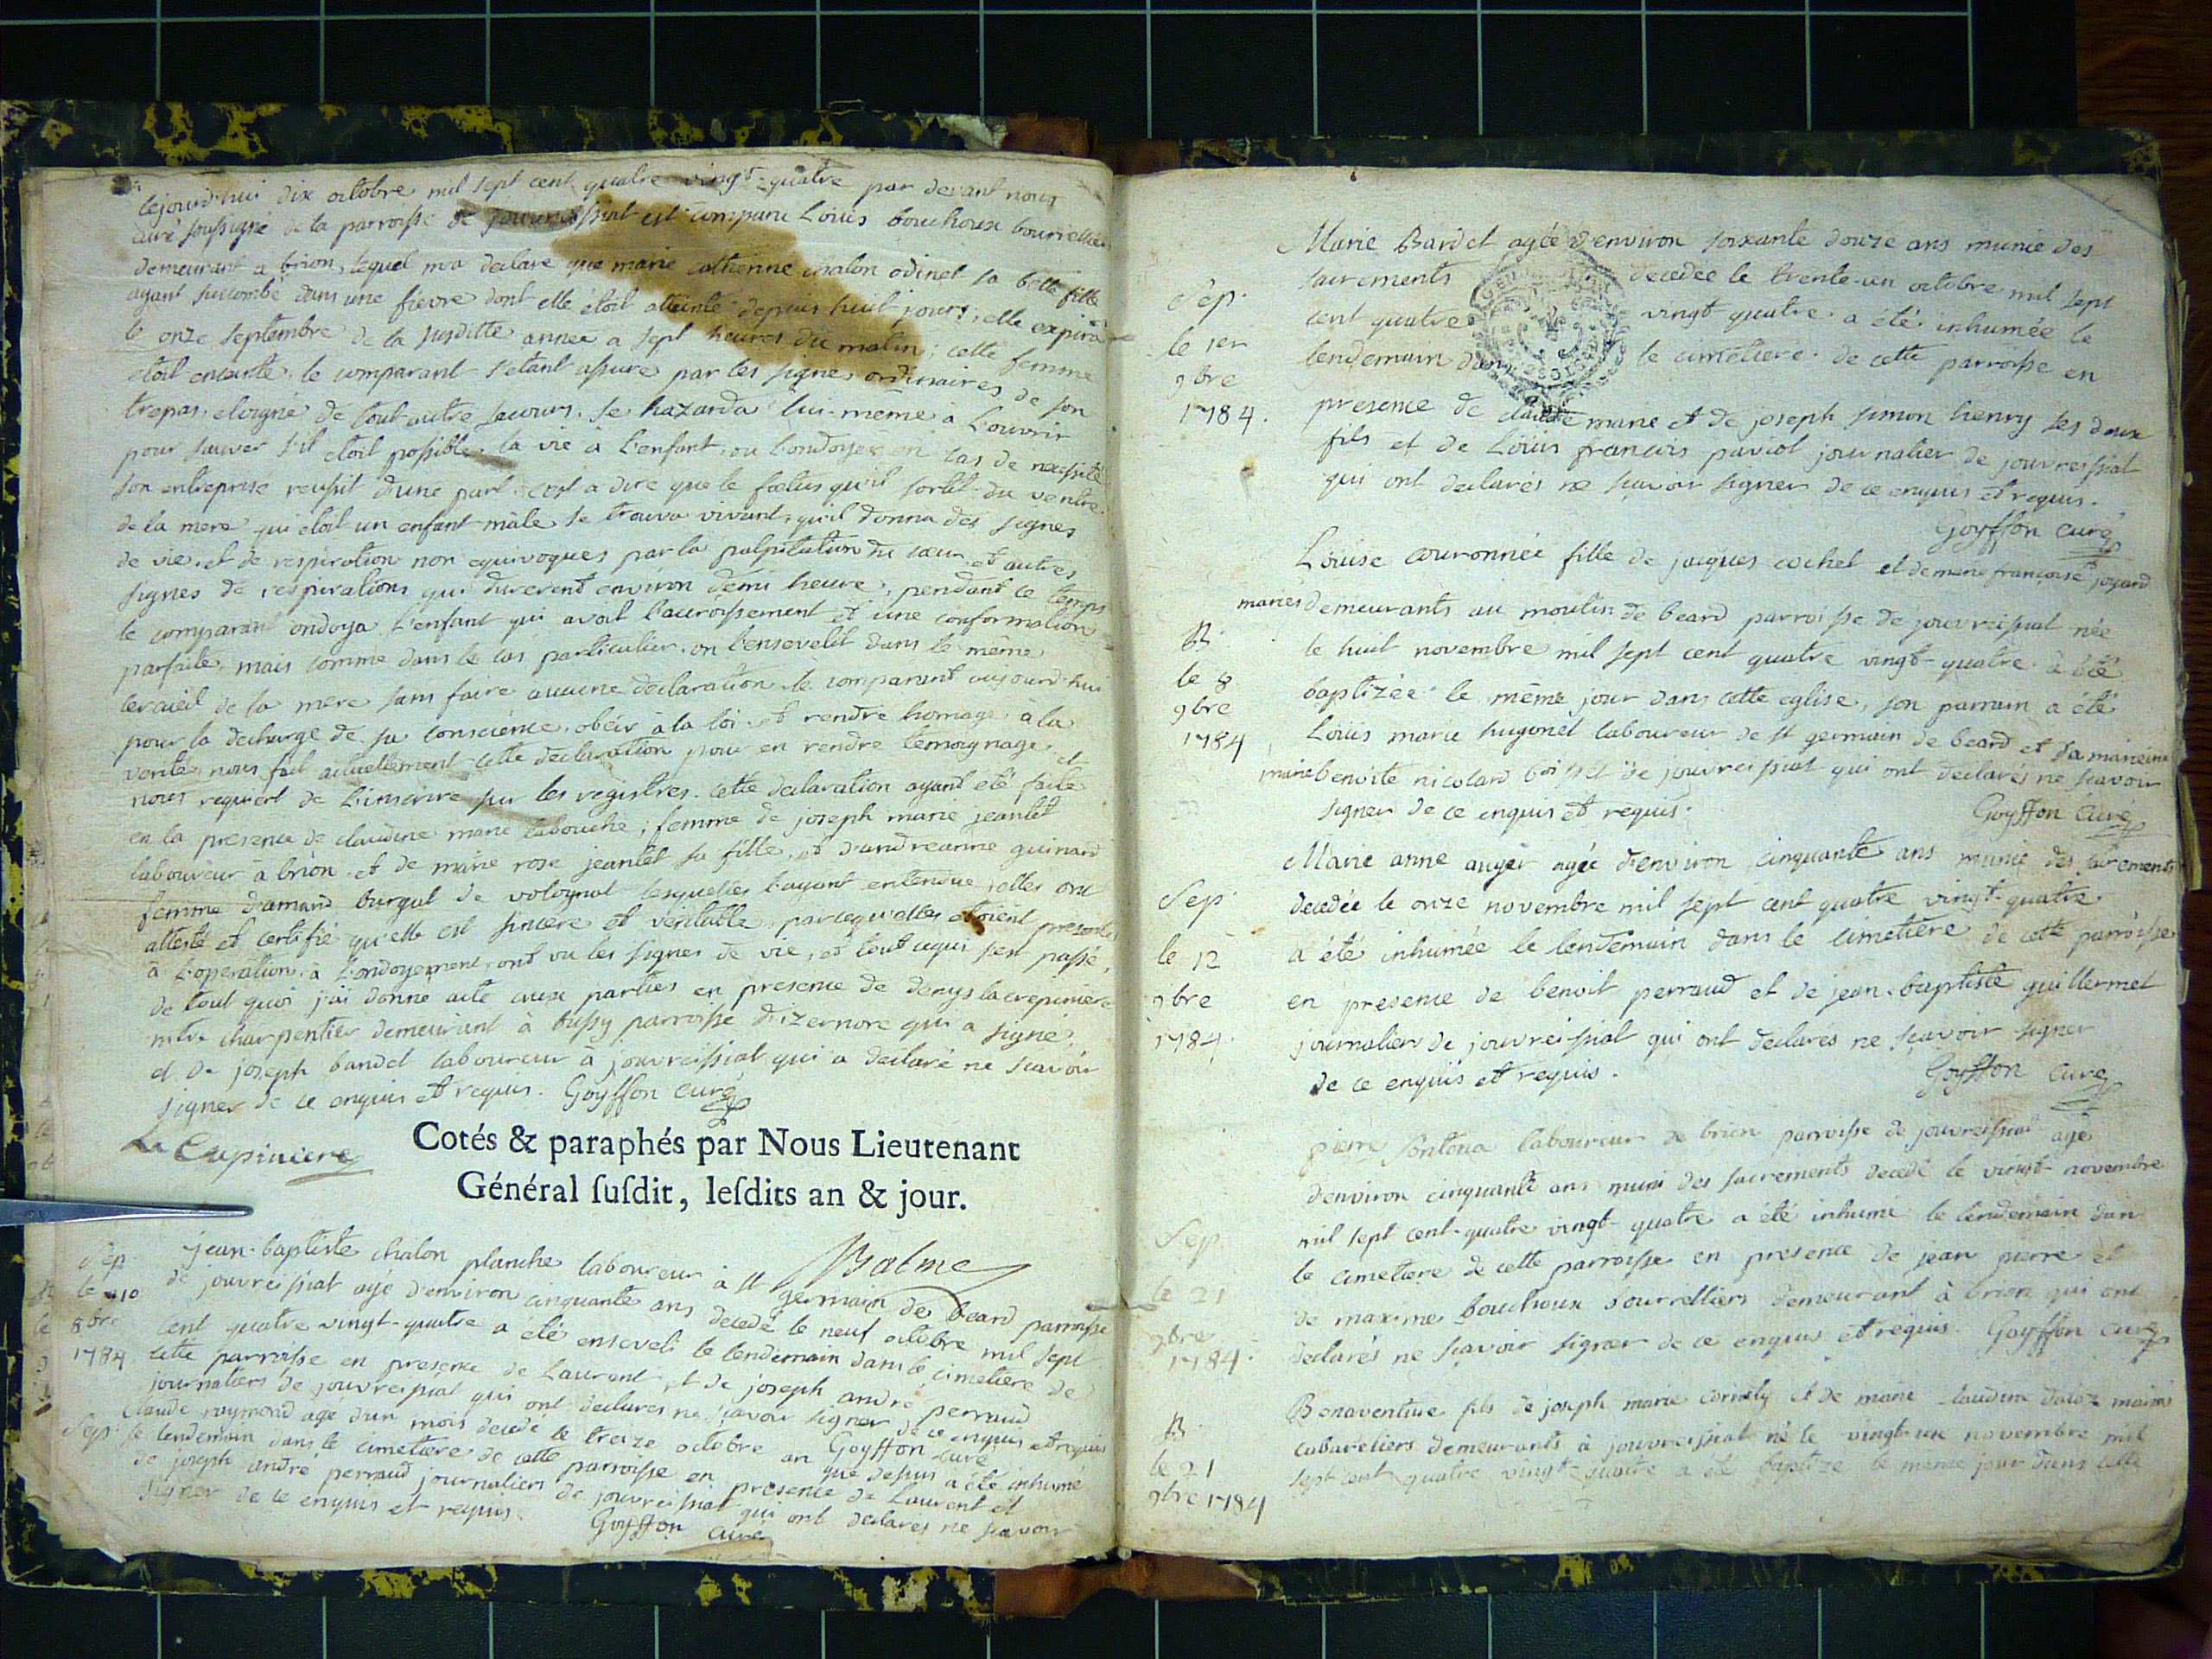 cejourd'hui dix octobre mil sept cent quatre vingt-quatre par devant nous
curé soussigné de la parroisse de jouvreissiat est comparu Loüis bouchoux bourrellier
demeurant a brion, lequel m'a declaré que marie catherine chalon odinet sa belle fille
ayant succombé dans une fievre dont elle étoit atteinte depuis huit jours, elle expira
le onze septembre de la susditte année a sept heures du matin; cette femme
etoit enceinte. le comparant s'etant assuré par les signes ordinaires de son
trepas. eloigné de tout autre secours. se hazarda lui-même a l'ouvrir
pour sauver s'il etoit possible. la vie à l'enfant, ou l'ondoyer en cas de necessité
son entreprise reussit d'une part. c'est a dire que le fœtus qu'il sortit du ventre
de la mere qui etoit un enfant mâle se trouva vivant, qu'il donna des signes
de vie, et de respiration non equivoques par la palpitation du cœur et autres
signes de respirations qui durerent environ demi heure, pendant ce temps
le comparant ondoya l'enfant qui avoit l'accroissement et une conformation
parfaite. mais comme dans le cas particulier. on l'ensevelit dans le même
cercueil de sa mere sans faire aucune declaration. le comparant aujourd'hui
pour la decharge de sa conscience. obéir à la loi. et rendre homage à la
verité, nous fait actuellement cette declaration pour en rendre temoignage et
nous requiert de l'inscrire sur les registres. cette declaration ayant été faite
en la presence de claudine marie labouche; femme de joseph marie jeantet
laboureur à brion. et de marie rose jeantet sa fille, et d'andreanne guinard
femme d'amand burgat de volognat lesquelles l'ayant entendue, elles ont
attesté et certifié qu'elle est sincere et veritable, parcequ'elles etoient presentes
à l'operation. à l'ondoyement, ont vu les signes de vie, et tout ce qui s'est passé,
de tout quoi j'ai donné acte aux parties en presence de denys lacrepiniere
mtre charpentier demeurant à bussy parroisse d'izernore qui a signé,
et de joseph bandet laboureur a jouvreissiat qui a declaré ne scavoir
signer de ce enquis et requis. Goyffon curé
La Crepiniere
Cotés & paraphés par Nous Lieutenant
Général ſuſdit, leſdits an & jour.
Balme
Sep.
le 10
8bre
1784
jean-baptiste chalon planche laboureur à st germain de beard parroisse
de jouvreissiat agé d'environ cinquante ans decedé le neuf octobre mil sept
cent quatre vingt-quatre a été enseveli le lendemain dans le cimetiere de
cette parroisse en presence de Laurent et de joseph andré perraud
journaliers de jouvreissiat qui ont declarés ne scavoir signer de ce enquis et requis
Goyffon curé
Sep.
Claude raymond agé d'un mois decedé le treize octobre an que dessus a été inhumé
le lendemain dans le cimetiere de cette parroisse en presence de Laurent et
de joseph andré perraud journaliers de jouvreissiat qui ont declarés ne scavoir
signer de ce enquis et requis. Goyffon curé
Sep.
le 1er
9bre
1784.
Marie Bardet agée d'environ soixante douze ans munie des
sacrements decedée le trente-un octobre mil sept
cent quatre vingt quatre a été inhumée le
lendemain dans le cimetiere de cette parroisse en
presence de claude marie et de joseph simon henry ses deux
fils et de Loüis françois paviot journalier de jouvreissiat
qui ont declarés ne scavoir signer de ce enquis et requis.
Goyffon curé
B.
le 8
9bre
1784
Loüise couronnée fille de jacques cochet et de marie françoise joyard
mariés demeurants au moulin de beard parroisse de jouvreissiat née
le huit novembre mil sept cent quatre vingt-quatre a été
baptizée le même jour dans cette eglise, son parrain a été
Loüis marie hugonet laboureur de st germain de beard et sa mareine
marie benoite nicolard boisset de jouvreissiat qui ont declarés ne scavoir
signer de ce enquis et requis.
Goyffon curé
Sep.
le 12
9bre
1784.
Marie anne auger agée d'environ cinquante ans munie des sacrements
decedée le onze novembre mil sept cent quatre vingt-quatre
a été inhumée le lendemain dans le cimetiere de cette parroisse
en presence de benoit perraud et de jean-baptiste guillermet
journaliers de jouvreissiat qui ont declarés ne scavoir signer
de ce enquis et requis.
Goyffon curé
Sep.
le 21
9bre
1784.
pierre laboureur de brion parroisse de jouvreissiat agé
d'environ cinquante ans muni des sacrements decedé le vingt novembre
mil sept cent-quatre vingt-quatre a été inhumé le lendemain dans
le cimetiere de cette parroisse en presence de jean pierre et
de maxime bouchoux bourrelliers demeurant à brion qui ont
declarés ne scavoir signer de ce enquis et requis. Goyffon curé
B.
le 21
9bre 1784
Bonaventure fils de joseph marie cornély et de marie claudine mariés
cabaretiers demeurants à jouvreissiat né le vingt-un novembre mil
sept cent quatre vingt-quatre a été baptizé le même jour dans cette